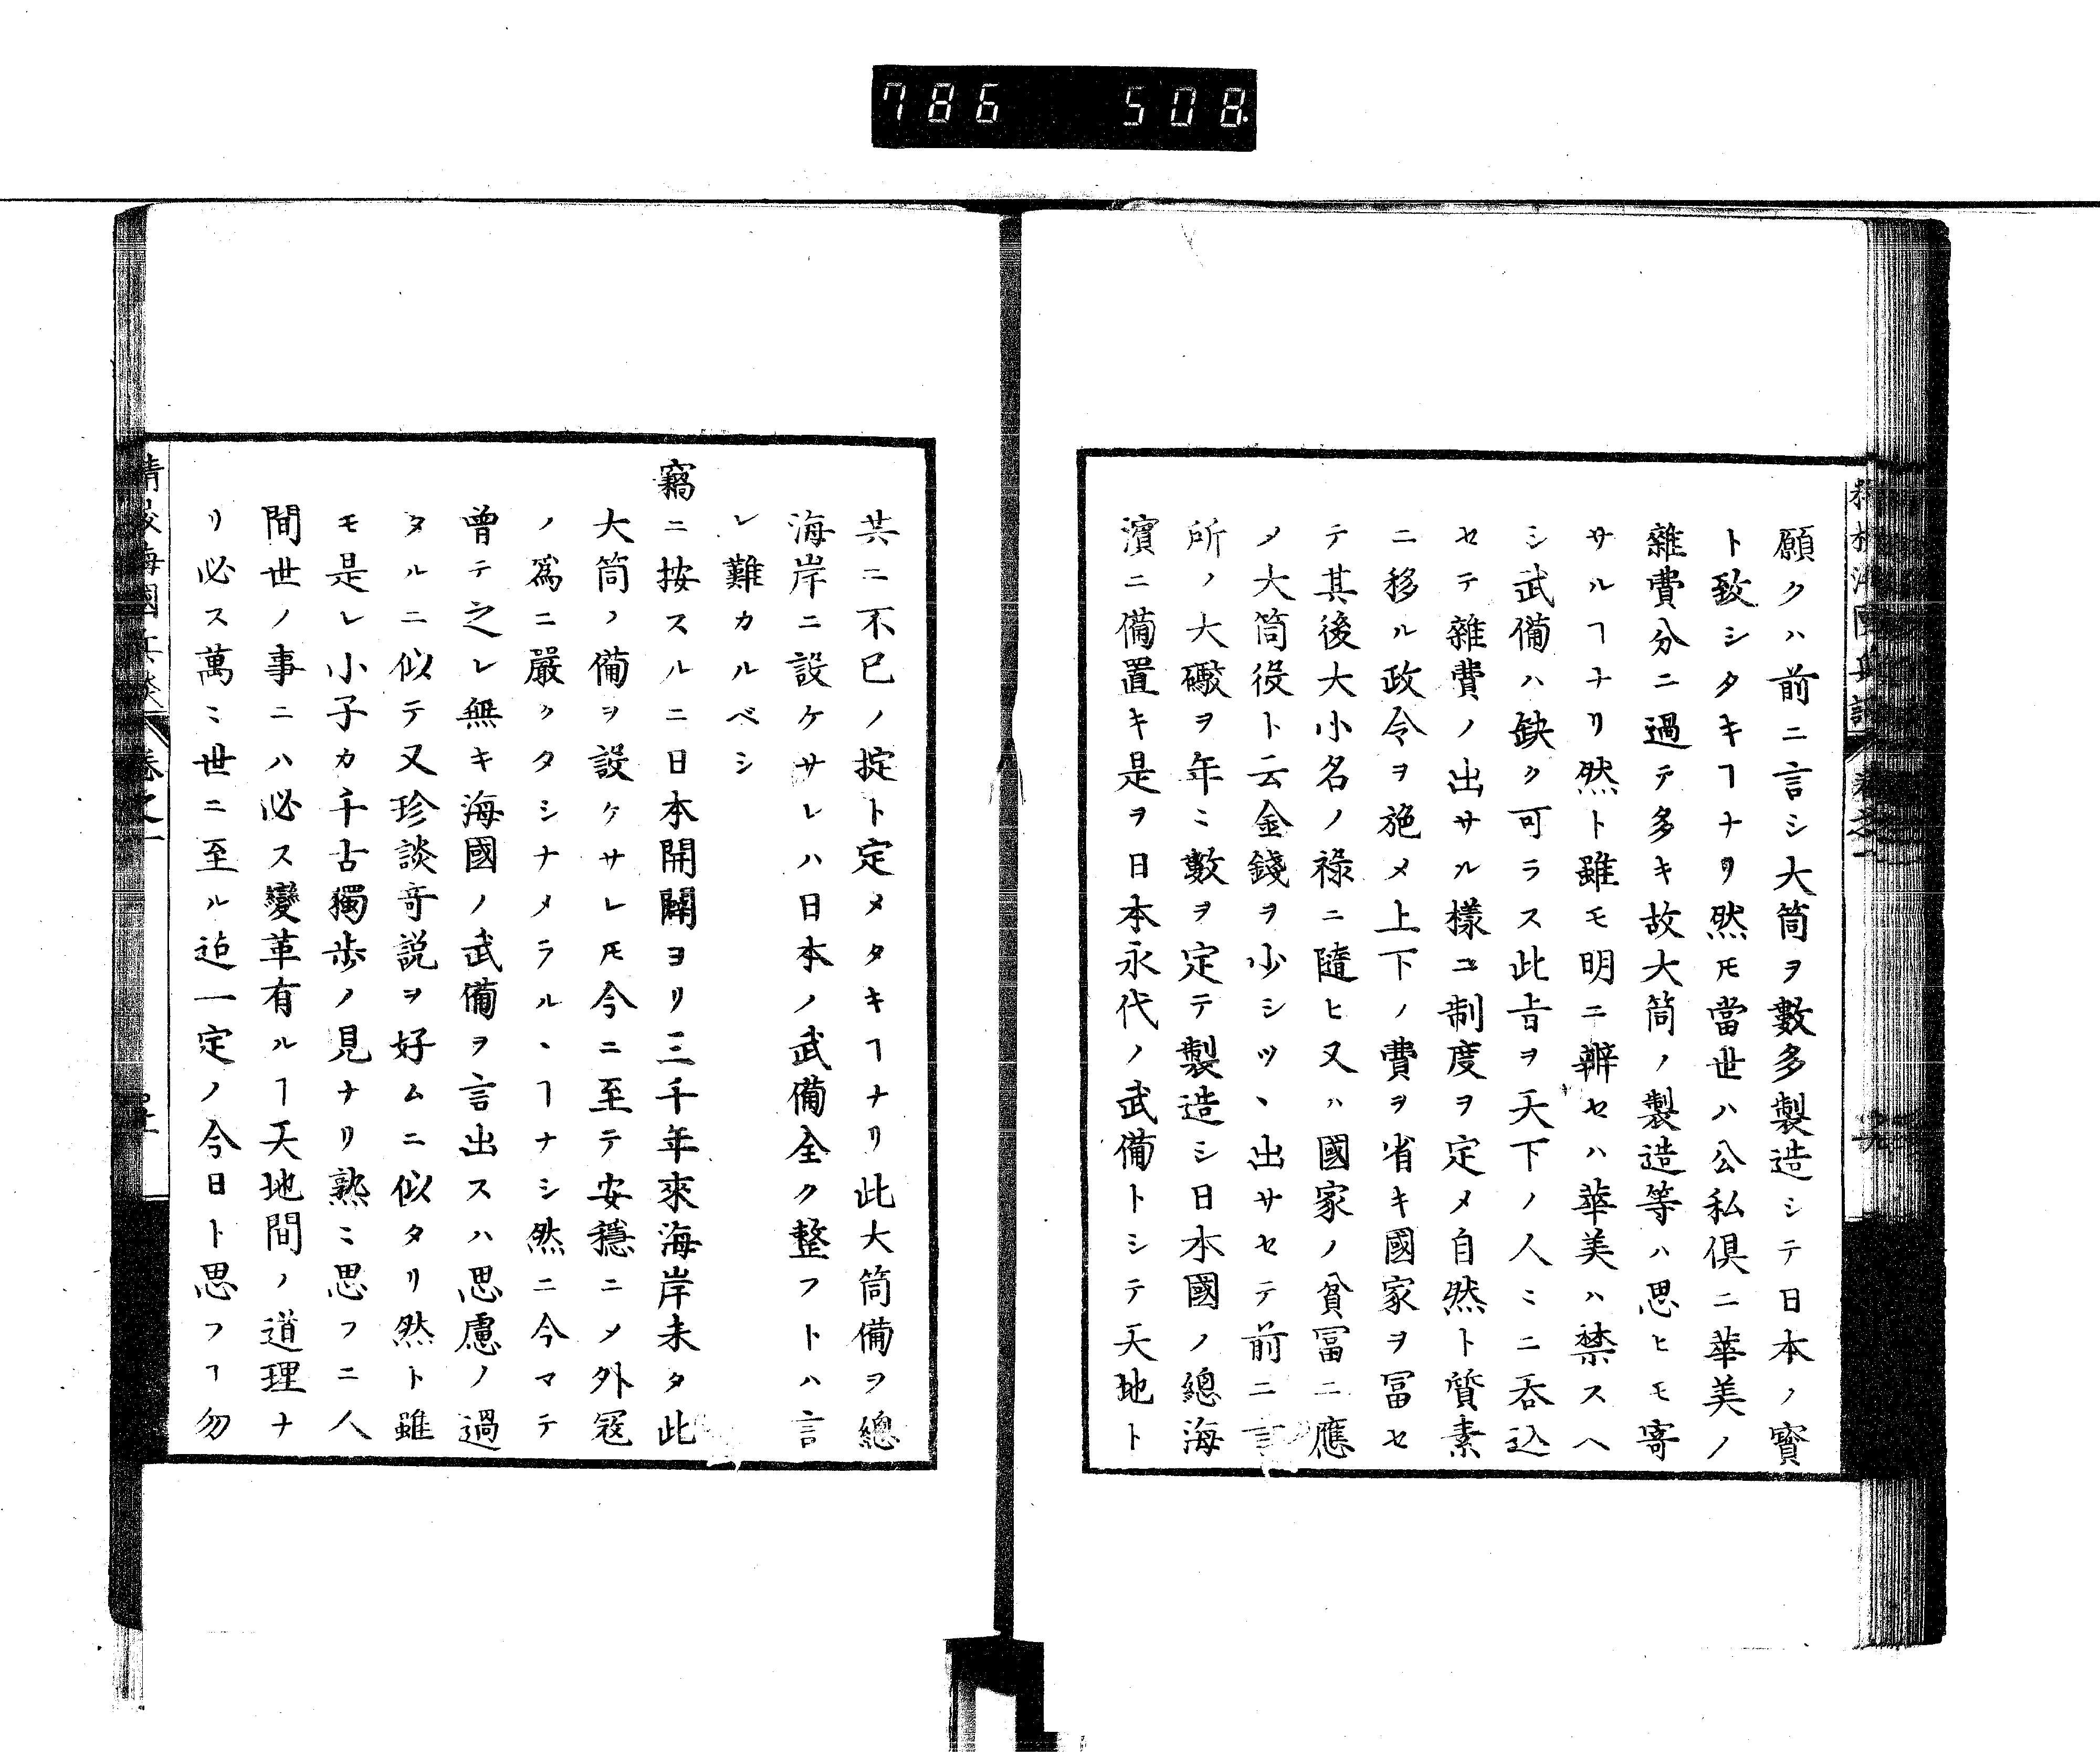 786 508
願クハ前ニ言シ大筒ヲ數多製造シテ日本ノ寳
ト致シタキヿナリ然𪜈當世ハ公私倶ニ華美ノ
雜費分ニ過テ多キ故大筒ノ製造等ハ思ヒモ寄
サルヿナリ然ト雖モ明ニ辨セハ華美ハ禁スヘ
シ武備ハ缺ク可ラス此旨ヲ天下ノ人〻ニ呑込
セテ雜費ノ出サル樣ニ制度ヲ定メ自然ト質素
ニ移ル政令ヲ施メ上下ノ費ヲ省キ國家ヲ冨セ
テ其後大小名ノ祿ニ隨ヒ又ハ國家ノ貧冨ニ應
メ大筒役ト云金錢ヲ少シツヽ出サセテ前ニ言
所ノ大礮ヲ年〻數ヲ定テ製造シ日本國ノ總海
濱ニ備置キ是ヲ日本永代ノ武備トシテ天地ト
共ニ不已ノ掟ト定メタキヿナリ此大筒備ヲ總
海岸ニ設ケサレハ日本ノ武備全ク整フトハ言
レ難カルベシ
竊ニ按スルニ日本開闢ヨリ三千年來海岸未タ此
大筒ノ備ヲ設ケサレ𪜈今ニ至テ安穩ニメ外冦
ノ爲ニ嚴クタシナメラルヽヿナシ然ニ今マテ
曾テ之レ無キ海國ノ武備ヲ言出スハ思慮ノ過
タルニ似テ又珍談奇説ヲ好ムニ似タリ然ト雖
モ是レ小子カ千古獨歩ノ見ナリ熟〻思フニ人
間世ノ事ニハ必ス變革有ルヿ天地間ノ道理ナ
リ必ス萬〻世ニ至ル迠一定ノ今日ト思フヿ勿
精校海國兵談 卷之一